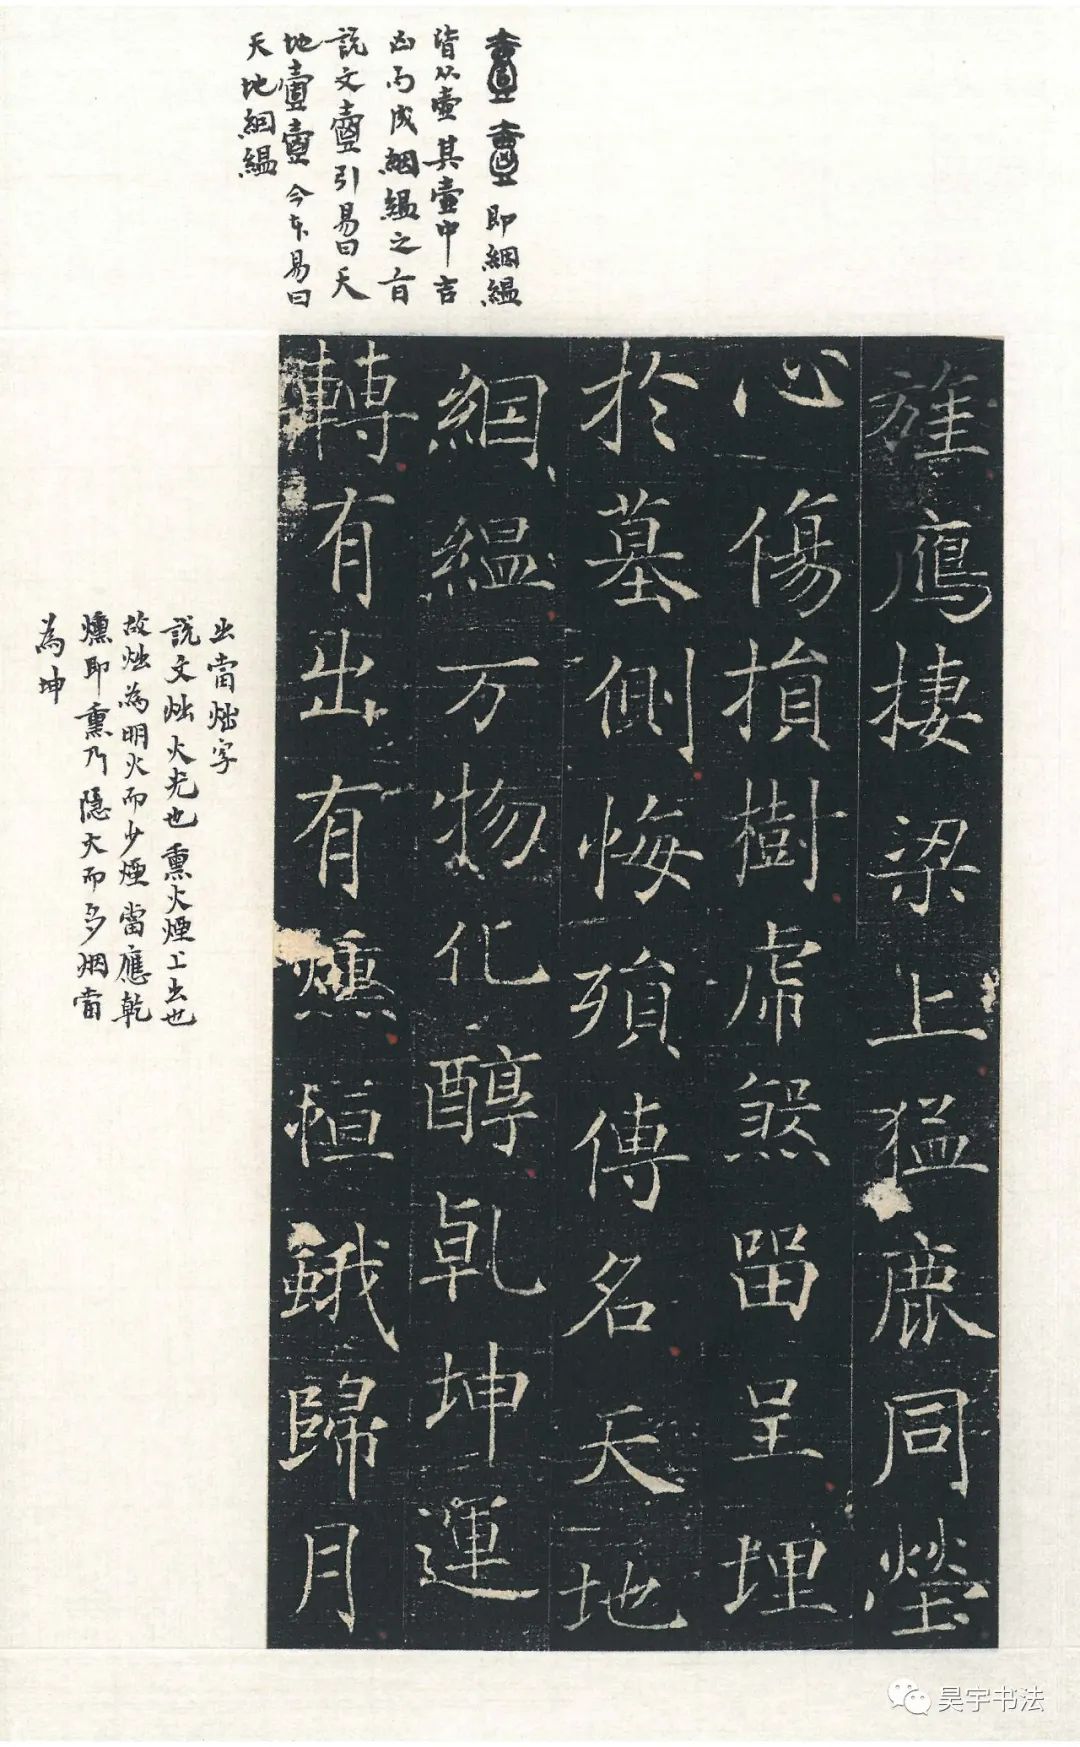 壹壺即絪緼
皆从壺其壺中吉
凶而成絪緼之旨
説文壺引易曰天
地壹壺今本易曰
天地絪緼
旌鴈棲梁上猛鹿同塋
心傷損樹虎煞留呈埋
於墓側悔殞傳名天地
絪緼万物化醇乹坤運
轉有出有燻恒蛾歸月
出當炪字
説文炪火光也熏火煙上出也
故炪為明火而少煙當應乾
燻即熏乃隱火而多烟當
為坤
昊宇书法